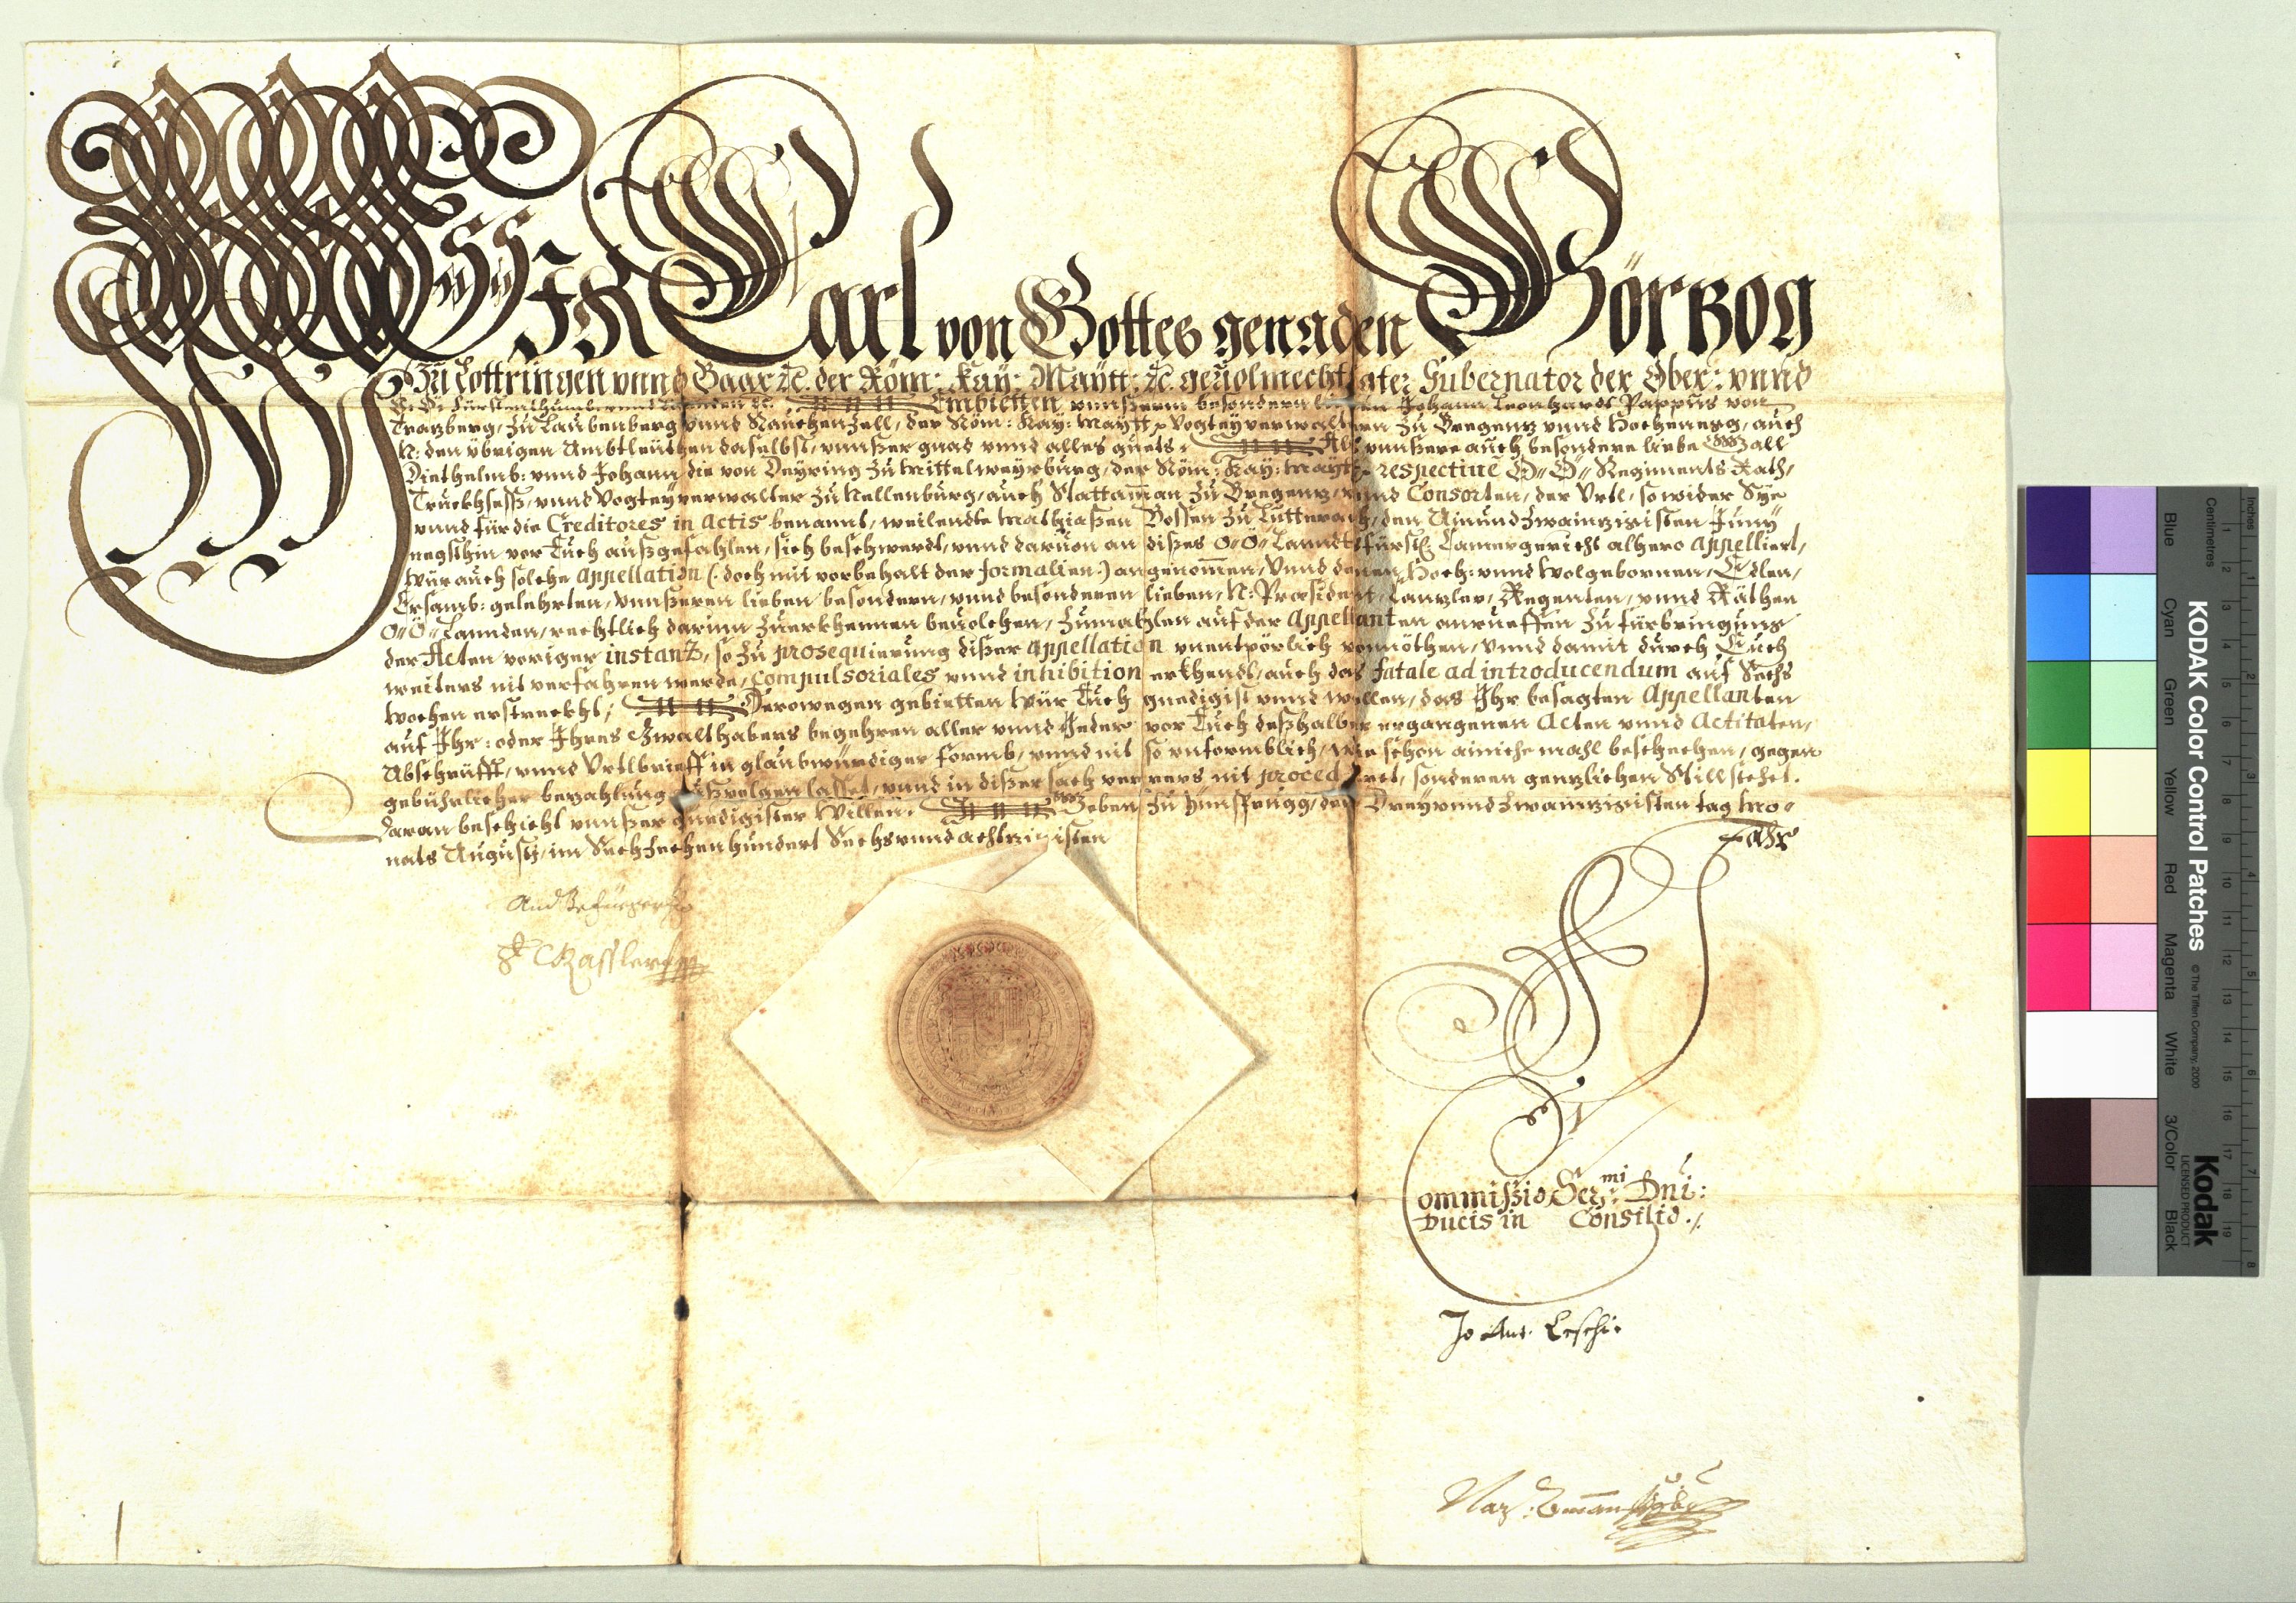 WIR Carl von Gottes genaden Hörtzog
Zu Lottringen vnnd Baar ꝛc. der Röm: Kay: Maytt: ꝛc. gevolmechtigter Gubernator der Ober: vnnd
Embietten vnnserm besondern lieben Johann Leonhardt Pappus von
Tratzberg, zu Laubenberg vnnd Rauchenzell, der Röm: Kay: Maytt: Vogteyverwaltern zu Bregentz vnnd Hochenegg, auch
N: den übrigen Ambtleuthen daselbst, vnnßer gnad vnnd alles guets. Als vnnßere auch besondere liebe Gall
Diethelmb: vnnd Johann die von Deyring zu Mittelweyrburg, der Röm: Kay: Maytt: respectiue O: Ö: Regiments Rath,
Truckhseß, vnnd Vogteyverwalter zu Nellenburg, auch Stattaman zu Bregentz, vnnd Consorten, der Vrtl, so wider Sye
vnnd für die Creditores in Actis benannt, weilendte Mathiaßen Bossen zu Lutterach, den Ainundzwaintzigisten Juny
negsthin vor Euch außgefahlen, sich beschwerdt, vnnd daruon an dißes O: Ö: Lanndtsfürstl: Camergericht alhero appelliert,
Wür auch solche Appellation (: doch mit vorbehalt der formalien :) angenomen, Vnnd denen Hoch: vnnd Wolgebornen, Edlen,
Ersamb: gelehrten, vnnßeren lieben besondern, vnnd besonderen lieben, N: Præsident, Canzler, Regenten, vnnd Räthen
O: Ö: Lannden, rechtlich darinn zuerkhennen beuolchen, zumahlen auf der Appellanten anrueffen zu fürbringung
der Acten voriger instanz, so zu prosequierung dißer appellation vnentpörlich vonnöthen, vnnd damit durch Euch
weiters nit verfahren werde, Compulsoriales vnnd inhibition erkhendt, auch das fatale ad introducendum auf Sechs
Wochen erstreckht; Derowegen gebietten Wür Euch gnedigist vnnd wöllen, das Ihr besagten Appellanten
auf Ihr: oder Ihres Gwalthabers begehren aller vnnd Jeder vor Euch deßhalber ergangenen Acten vnnd Actitaten,
Abschrüfft, vnnd Vrtlbrieff in glaubwürdiger formb, vnnd nit so vnformblich, wie schon ainiche mahl beschechen, gegen
gebührlicher bezahlung außvolgen lasset, vnnd in dißer sach verrers nit procediret, sonderen gentzlichen Still stehet.
Daran beschicht vnnßer gnedigister Willen. Geben zu Ynsprugg, den Dreyvnndzwaintzigisten tag Mo-
nats Augusti, im Sechzechenhundert Sechsvnndachtzigisten
Jahr
Commissio Ser:mi Dni:
Ducis in Consilio ./.